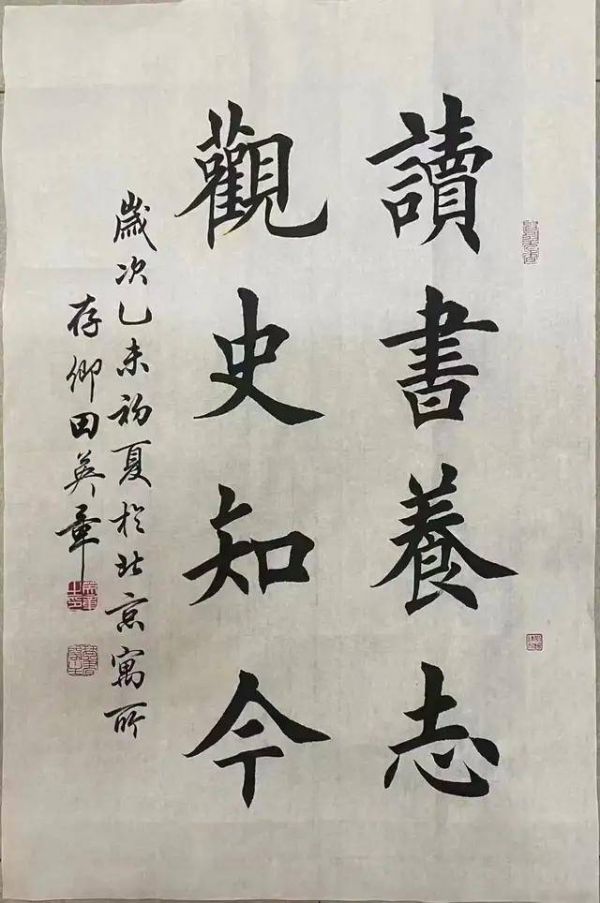 讀書養志
觀史知今
歲次乙未初夏於北京寓所
存卿田英章